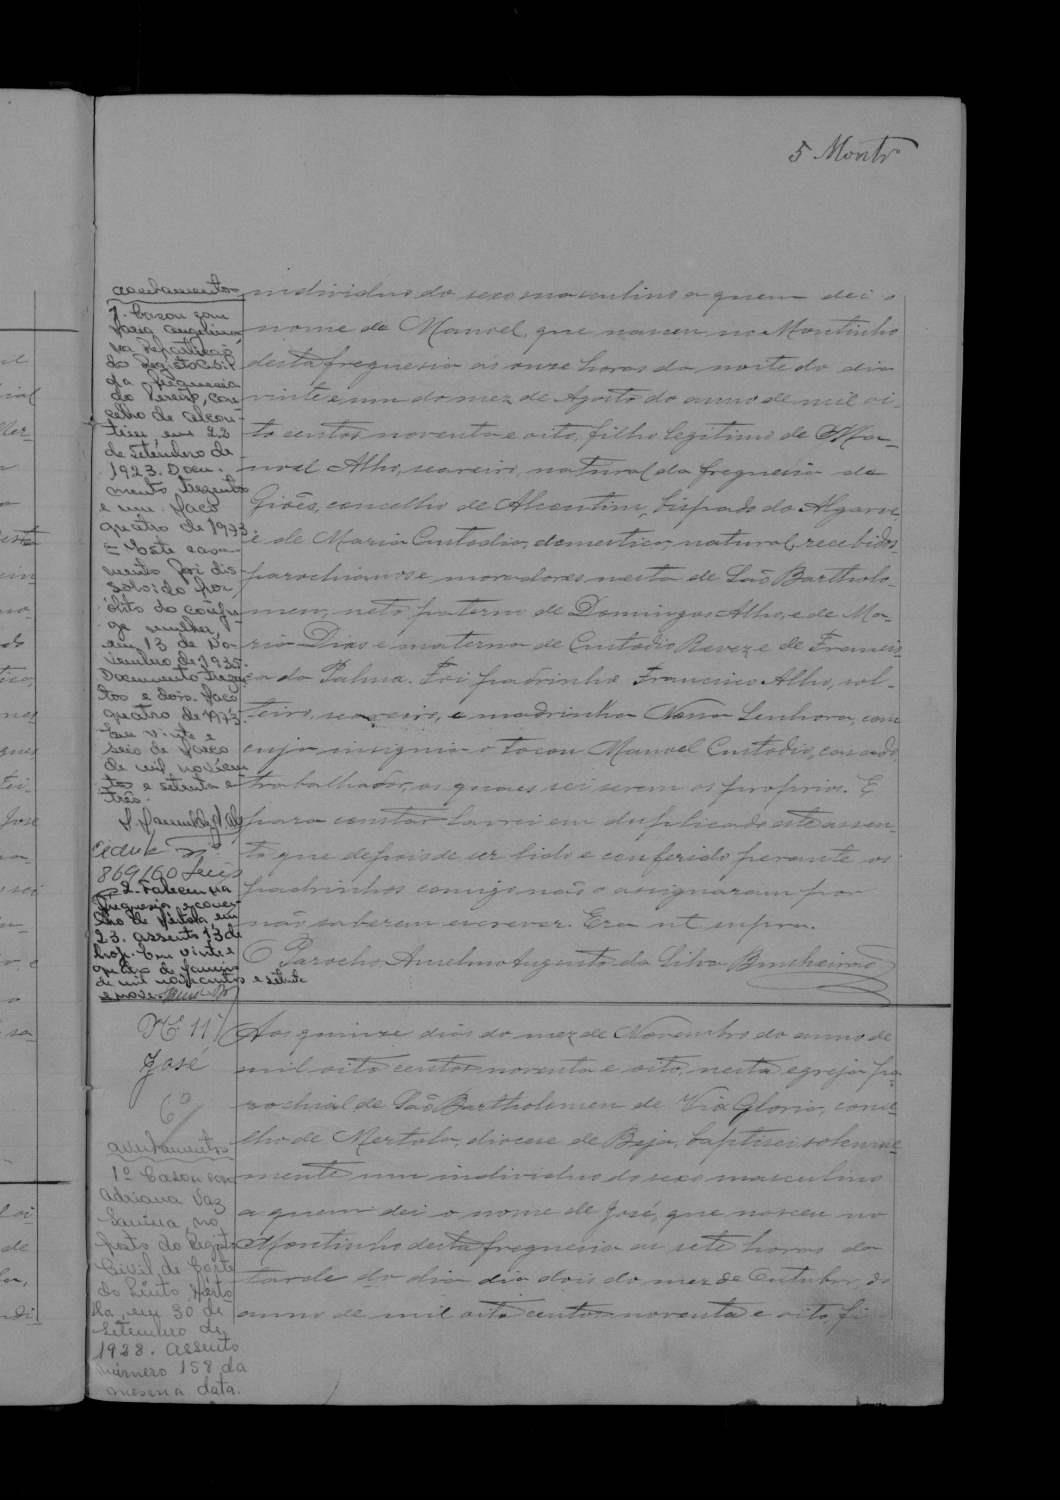 5 Montr
averbamentos
1. Casou com
Maria Angelina
na Repartição
do Registo Civil
da freguesia
do Pereiro, con-
celho de Alcou-
tim, em 22
de Setembro de
1923. Docu-
mento trezentos
e um. Maço
quatro de 1973
= Este casa-
mento foi dis-
solvido por
óbito do cônju-
ge mulher,
em 13 de No-
vembro de 1935.
Documento trezen-
tos e dois. Maço
quatro de 1973.
Em vinte e
seis de Março
de mil novecen-
tos e setenta e
três.
Cedula nº
869160
2. Faleceu na
freguesia e conce-
lho de Mertola, em
23. assento 13 de
hoje. Em vinte e
quatro de Janeiro
de mil novecentos e setenta
e nove.
individuo do sexo masculino a quem dei o
nome de Manoel, que nasceu no Montinho
desta freguesia ás onze horas da noite do dia
vinte e um do mez de Agosto do anno de mil oi-
to centos noventa e oito, filho legitimo de Ma-
noel Alho, seareiro, natural da freguesia de
Giões, concelho de Alcoutim, bispado do Algarve
e de Maria Custodia, domestica, natural, recebidos
parochianos e moradores nesta de São Bartholo-
meu, neto paterno de Domingos Alho, e de Ma-
ria Dias e materno de Custodio Revez e de Francis-
ca da Palma. Foi padrinho Francisco Alho, sol-
teiro, seareiro, e madrinha Nossa Senhora, com
cuja insignia o tocou Manoel Custodio, casado,
trabalhador, os quaes sei serem os proprios. E
para constar lavrei em duplicado este assen-
to que depois de ser lido e conferido perante os
padrinhos comigo não o assignaram por
não saberem escrever. Era ut supra.
O Parocho Anselmo Augusto da Silva
Nº 11
José
6º
averbamentos
1º Casou com
Adriana Vaz
no
posto do Registo
Civil de Corte
do Pinto, Mérto-
la, em 30 de
Setembro de
1928. Assento
número 158 da
mesma data.
Aos quinze dias do mez de Novembro do anno de
mil oito centos noventa e oito, nesta egreja pa-
rochial de São Bartholomeu de Via Gloria, conce-
lho de Mertola, diocese de Beja, baptisei solemne-
mente um individuo do sexo masculino
a quem dei o nome de José, que nasceu no
Montinho desta freguesia as sete horas da
tarde do dia dia dois do mez de Outubro do
anno de mil oito centos noventa e oito fi-